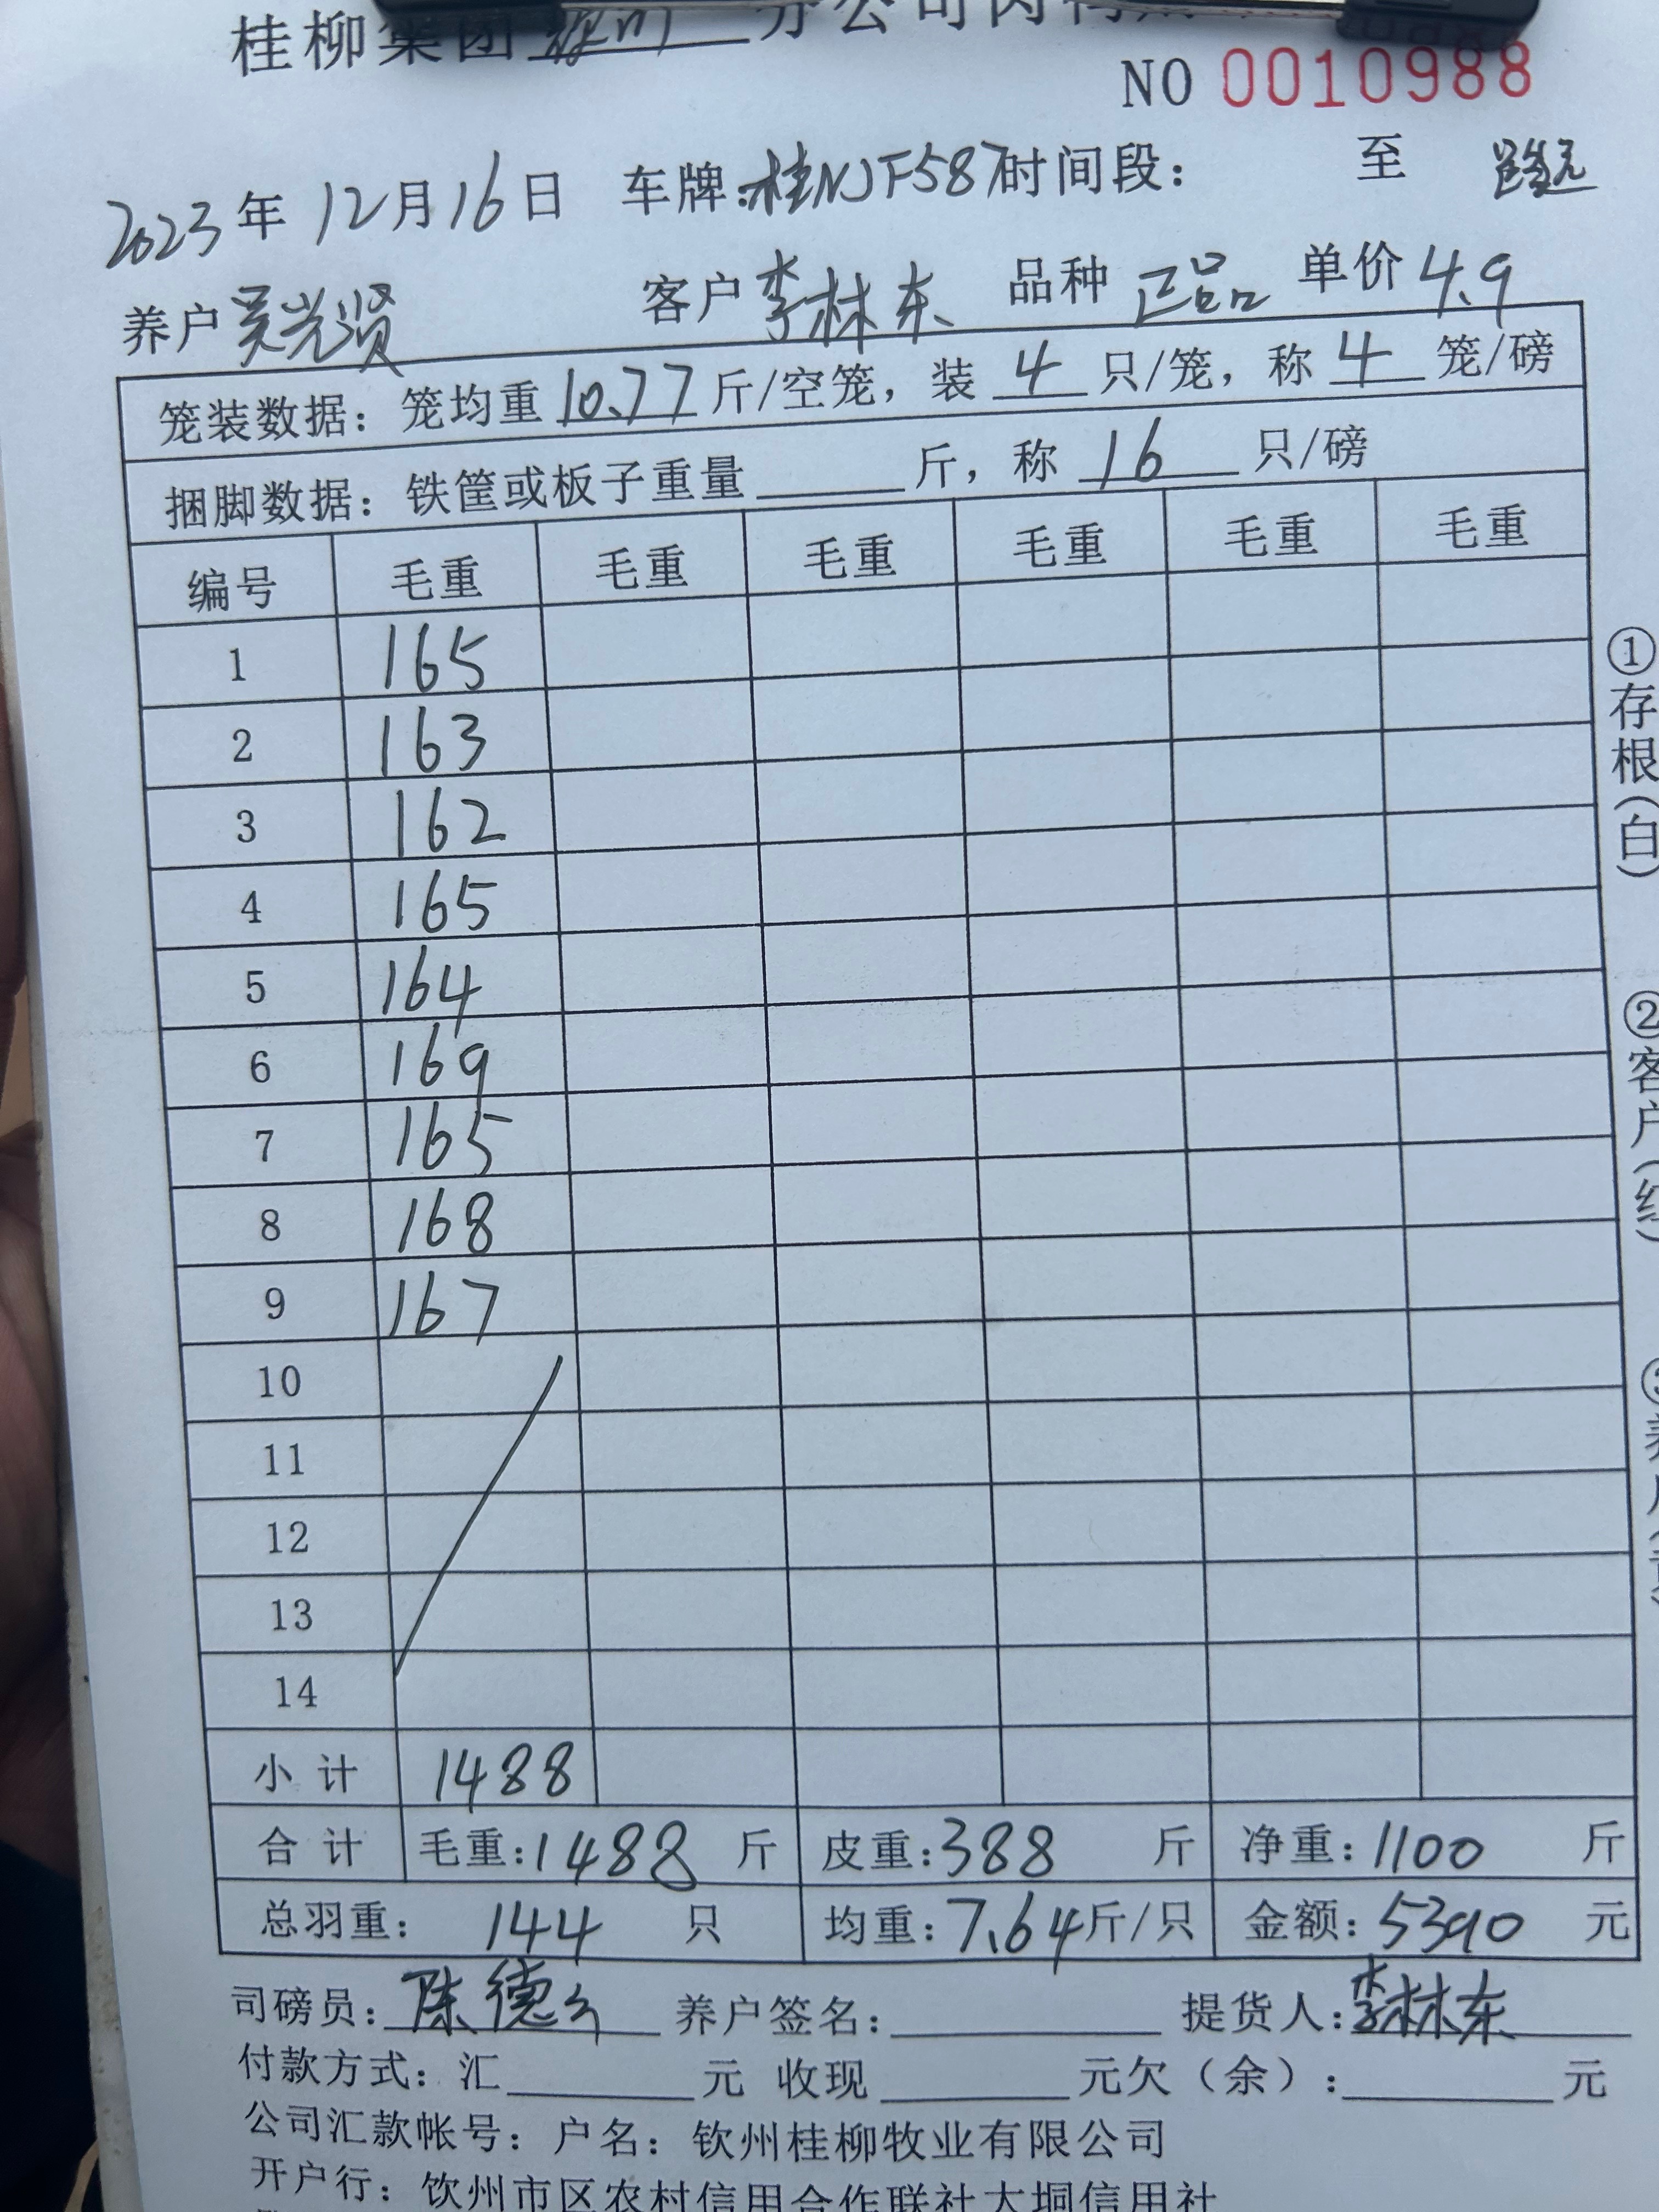 桂柳集团 钦州 分公司肉鸭
NO 0010988
2023年12月16日 车牌:桂NJF587时间段: 至
养户 吴光贤 客户 李林东 品种 正品 单价 4.9
笼装数据:笼均重 10.77 斤/空笼,装 4 只/笼,称 4 笼/磅
捆脚数据:铁筐或板子重量 斤,称 16 只/磅
编号 毛重 毛重 毛重 毛重 毛重 毛重
1 165
2 163
3 162
4 165
5 164
6 169
7 165
8 168
9 167
10
11
12
13
14
小计 1488
合计 毛重:1488 斤 皮重:388 斤 净重:1100 斤
总羽重: 144 只 均重:7.64斤/只 金额:5390 元
司磅员:陈德 养户签名: 提货人:李林东
付款方式:汇 元 收现 元欠(余): 元
公司汇款帐号:户名:钦州桂柳牧业有限公司
开户行:钦州市区农村信用合作联社大垌信用社
①存根(白)
②客户(红)